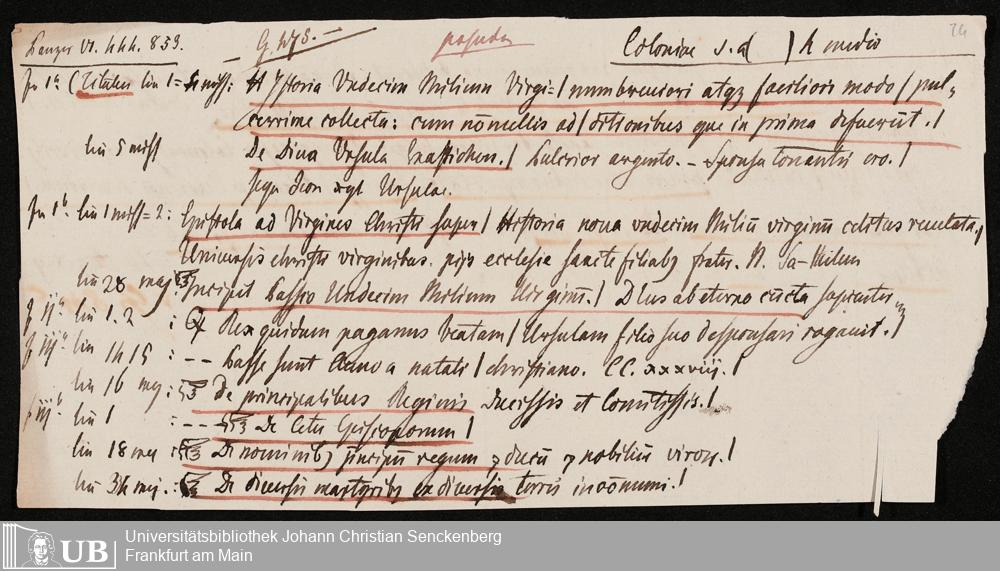 Panzer VI. 444. 859. G. W/S. — Coloniae s. a. 4 medio 24
fu 1a (Titulus lin 1 = 4 miss: Hystoria Undecim Milium Virgi=/num breuiori atqz faciliori modo/pul,
cerrime collecta: cum nõnullis ad/ditionibus que in prima defuerũt./
lin 5 miss De Diua Ursula / Pulcrior argento. – Sponsa tonantis ero./
Ursulae.
fu 1b. lin 1 miss = 2: Epistola ad Virgines Christi / Historia noua undecim Miliũ virginũ celitus reuelata./
Uniuersis christi virginibus. pijs ecclesie sancte filiabz frater. N.
lin 28 maj: Incipit Passio Undecim Milium Virginũ./ Deus ab eterno cũcta
f ija lin 1. 2 : Rex quidam paganus beatam/Ursulam filio suo desponsari rogauit./
f iija lin 14 15 : -- Passe sunt Anno a natali/christiano. CC. xxxviij./
lin 16 maj: De principalibus Reginis Ducissis et Comitissis./
f iijb lin 1 : -- De Cetu Episcoporum/
lin 18 maj: De nominibz principũ regum z ducũ z nobiliũ viroru./
lin 34 maj.: De diuersis martyribz ex diuersis terris
Universitätsbibliothek Johann Christian Senckenberg
UB Frankfurt am Main